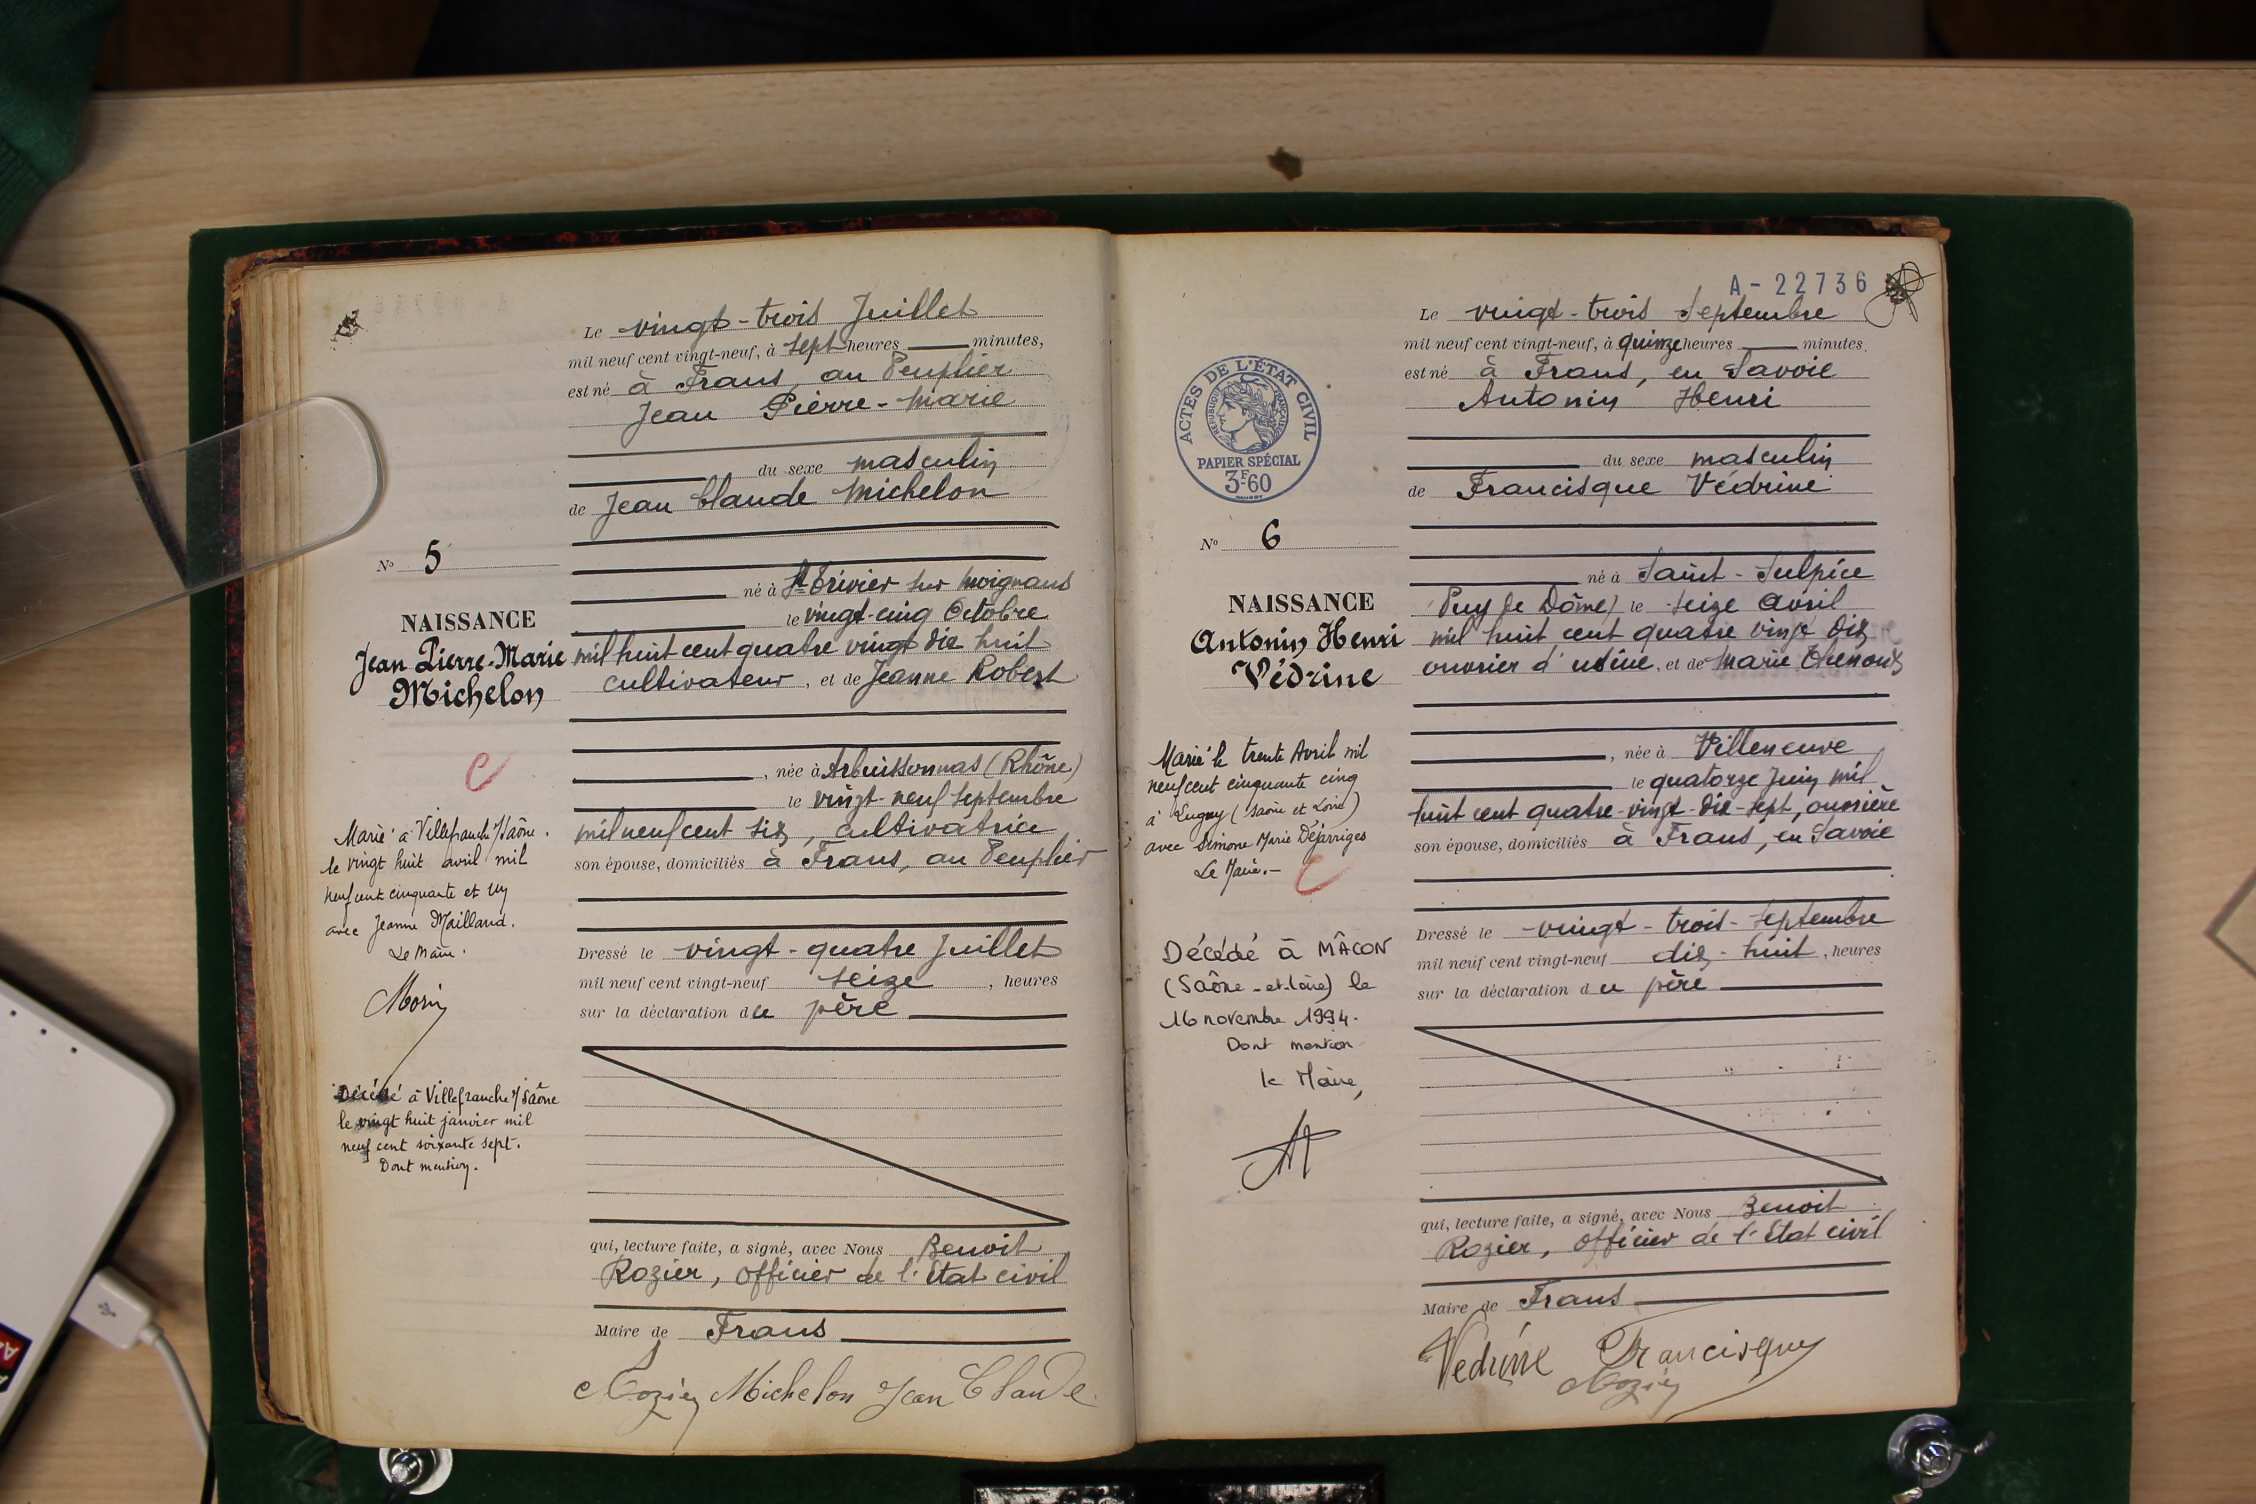 Le vingt-trois Juillet
mil neuf cent vingt-neuf, à sept heures minutes,
est né à Frans, au Peuplier
Jean Pierre-Marie
du sexe masculin
de Jean Claude Michelon
né à St Trivier sur Moignans
le vingt-cinq Octobre
mil huit cent quatre vingt dix huit
cultivateur, et de Jeanne Robert
, née à Arbuissonnas (Rhône)
le vingt-neuf septembre
mil neuf cent six, cultivatrice
son épouse, domiciliés à Frans, au Peuplier
Dressé le vingt-quatre Juillet
mil neuf cent vingt-neuf seize, heures
sur la déclaration du père
qui, lecture faite, a signé, avec Nous Benoit
Rozier, officier de l'Etat civil
Maire de Frans
Rozier Michelon Jean Claude
No 5
NAISSANCE
Jean Pierre-Marie
Michelon
C
Marié à Villefranche s/Saône.
le vingt huit avril mil
neuf cent cinquante et un
avec Jeanne Maillard.
Le Maire.
Morin
Décédé à Villefranche s/Saône
le vingt huit janvier mil
neuf cent soixante sept.
Dont mention.
A-22736
Le vingt-trois Septembre
mil neuf cent vingt-neuf, à quinze heures minutes,
est né à Frans, en Savoie
Antonin Henri
du sexe masculin
de Francisque Védrine
né à Saint-Sulpice
(Puy de Dôme) le seize Avril
mil huit cent quatre vingt dix
ouvrier d'usine, et de Marie
, née à Villeneuve
le quatorze Juin mil
huit cent quatre-vingt-dix-sept, ouvrière
son épouse, domiciliés à Frans, en Savoie
Dressé le vingt-trois-septembre
mil neuf cent vingt-neuf dix-huit, heures
sur la déclaration du père
qui, lecture faite, a signé, avec Nous Benoit
Rozier, officier de l'Etat civil
Maire de Frans
Vedrine Francisque
Rozier
ACTES DE L'ÉTAT CIVIL
RÉPUBLIQUE FRANÇAISE
PAPIER SPÉCIAL
3F60
No 6
NAISSANCE
Antonin Henri
Védrine
Marié le trente Avril mil
neuf cent cinquante cinq
à Lugny (Saône et Loire)
avec Simone Marie Déjarriges
Le Maire.-
C
Décédé à MÂCON
(Saône-et-Loire) le
16 novembre 1994.
Dont mention
le Maire,